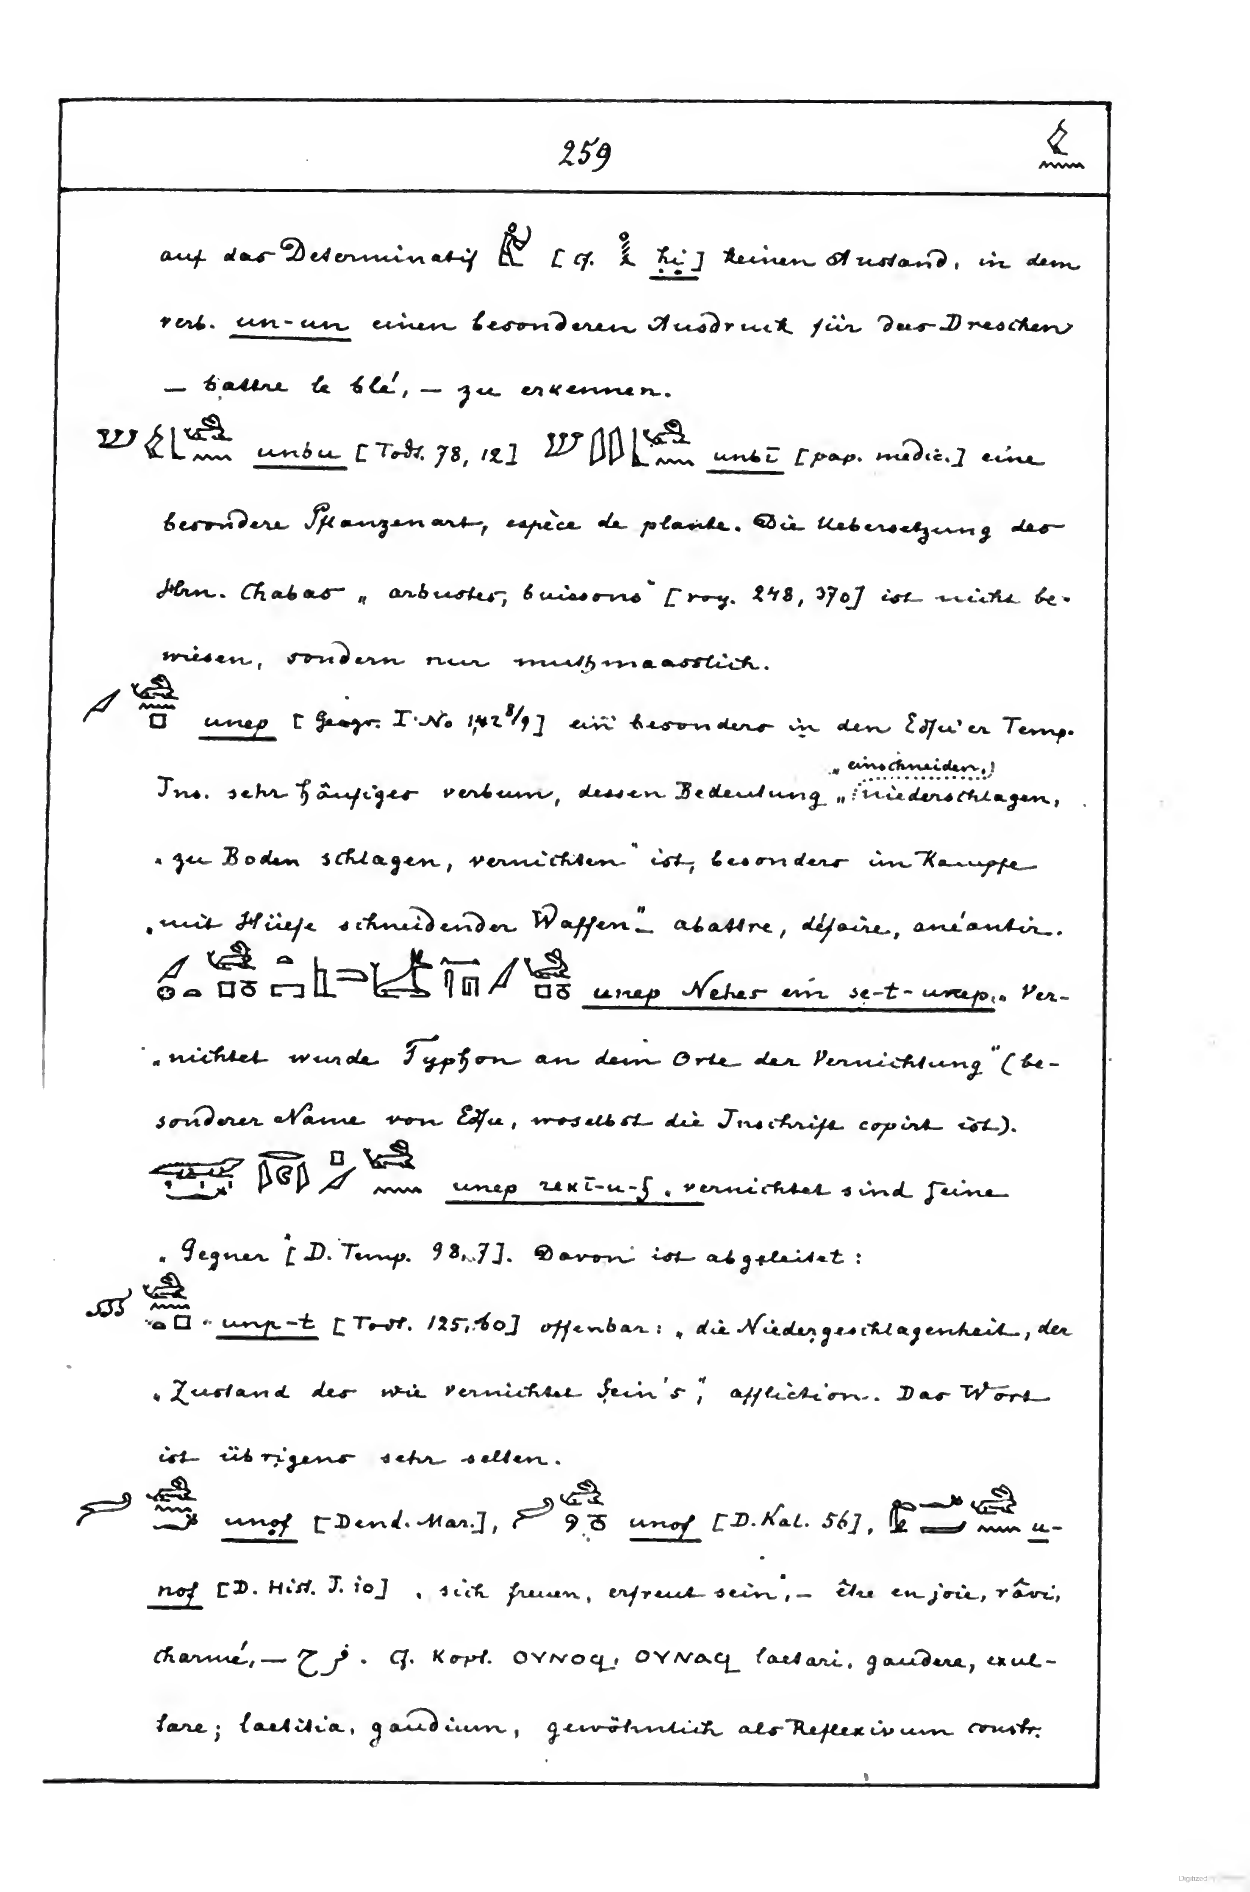 259
auf das Determinatif [cf. ḥi] keinen Anstand, in dem
verb. un-un einen besonderen Ausdruck für das Dreschen
— battre le blé, — zu erkennen.
unbu [Todt. 78, 12] unbī [pap. medic.] eine
besondere Pflanzenart, espèce de plante. Die Uebersetzung des
Hrn. Chabas „arbustes, buissons“ [roy. 248, 370] ist nicht be-
wiesen, sondern nur muthmaasslich.
unep [Geogr. I. No 142 8/9] ein besonders in den Edfu'er Temp.
„einschneiden,
Ins. sehr häufiges verbum, dessen Bedeutung „niederschlagen,
„zu Boden schlagen, vernichten“ ist, besonders im Kampfe
„mit Hülfe schneidender Waffen“ — abattre, défaire, anéantir.
unep Nehes em se-t-unep. „Ver-
„nichtet wurde Typhon an dem Orte der Vernichtung“ (be-
sonderer Name von Edfu, woselbst die Inschrift copirt ist).
unep rexī-u-f. „vernichtet sind seine
„Gegner“ [D. Temp. 98, 7]. Davon ist abgeleitet:
unp-t [Todt. 125, 60] offenbar: „die Niedergeschlagenheit, der
„Zustand des wie vernichtet Sein's“, affliction. Das Wort
ist übrigens sehr selten.
unof [Dend. Mar.], unof [D. Kal. 56], u-
nof [D. Hist. J. 10] „sich freuen, erfreut sein“, — être en joie, râvi,
charmé, — فرح. Cf. Kopt. ⲞⲨⲚⲞϤ, ⲞⲨⲚⲀϤ laetari, gaudere, exul-
tare; laetitia, gaudium, gewöhnlich als Reflexivum constr.